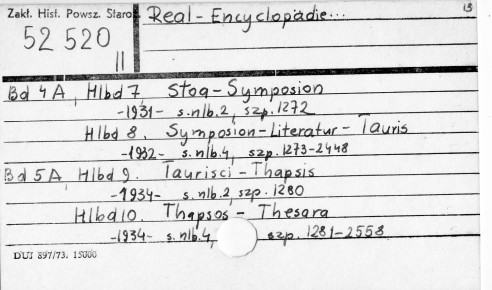 Zakł. Hist. Powsz. Staroż.
Real-Encyclopädie...
13
52 520
II
Bd 4A, Hlbd 7. Stoa-Symposion
-1931- s.nlb.2, szp.1272
Hlbd 8. Symposion-Literatur-Tauris
-1932- s.nlb.4, szp.1273-2448
Bd 5A, Hlbd 9. Taurisci-Thapsis
-1934- s.nlb.2, szp.1280
Hlbd 10. Thapsos - Thesara
-1934- s.nlb.4, szp.1281-2558
DUJ 897/73. 15000